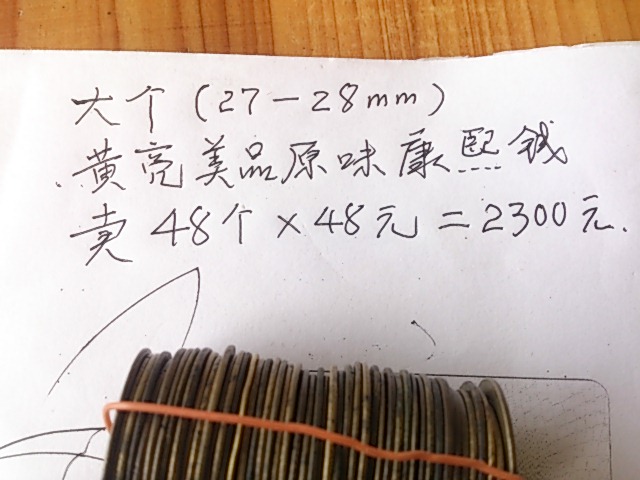 大个(27-28mm)
黄亮美品原味康熙钱
卖48个×48元=2300元.